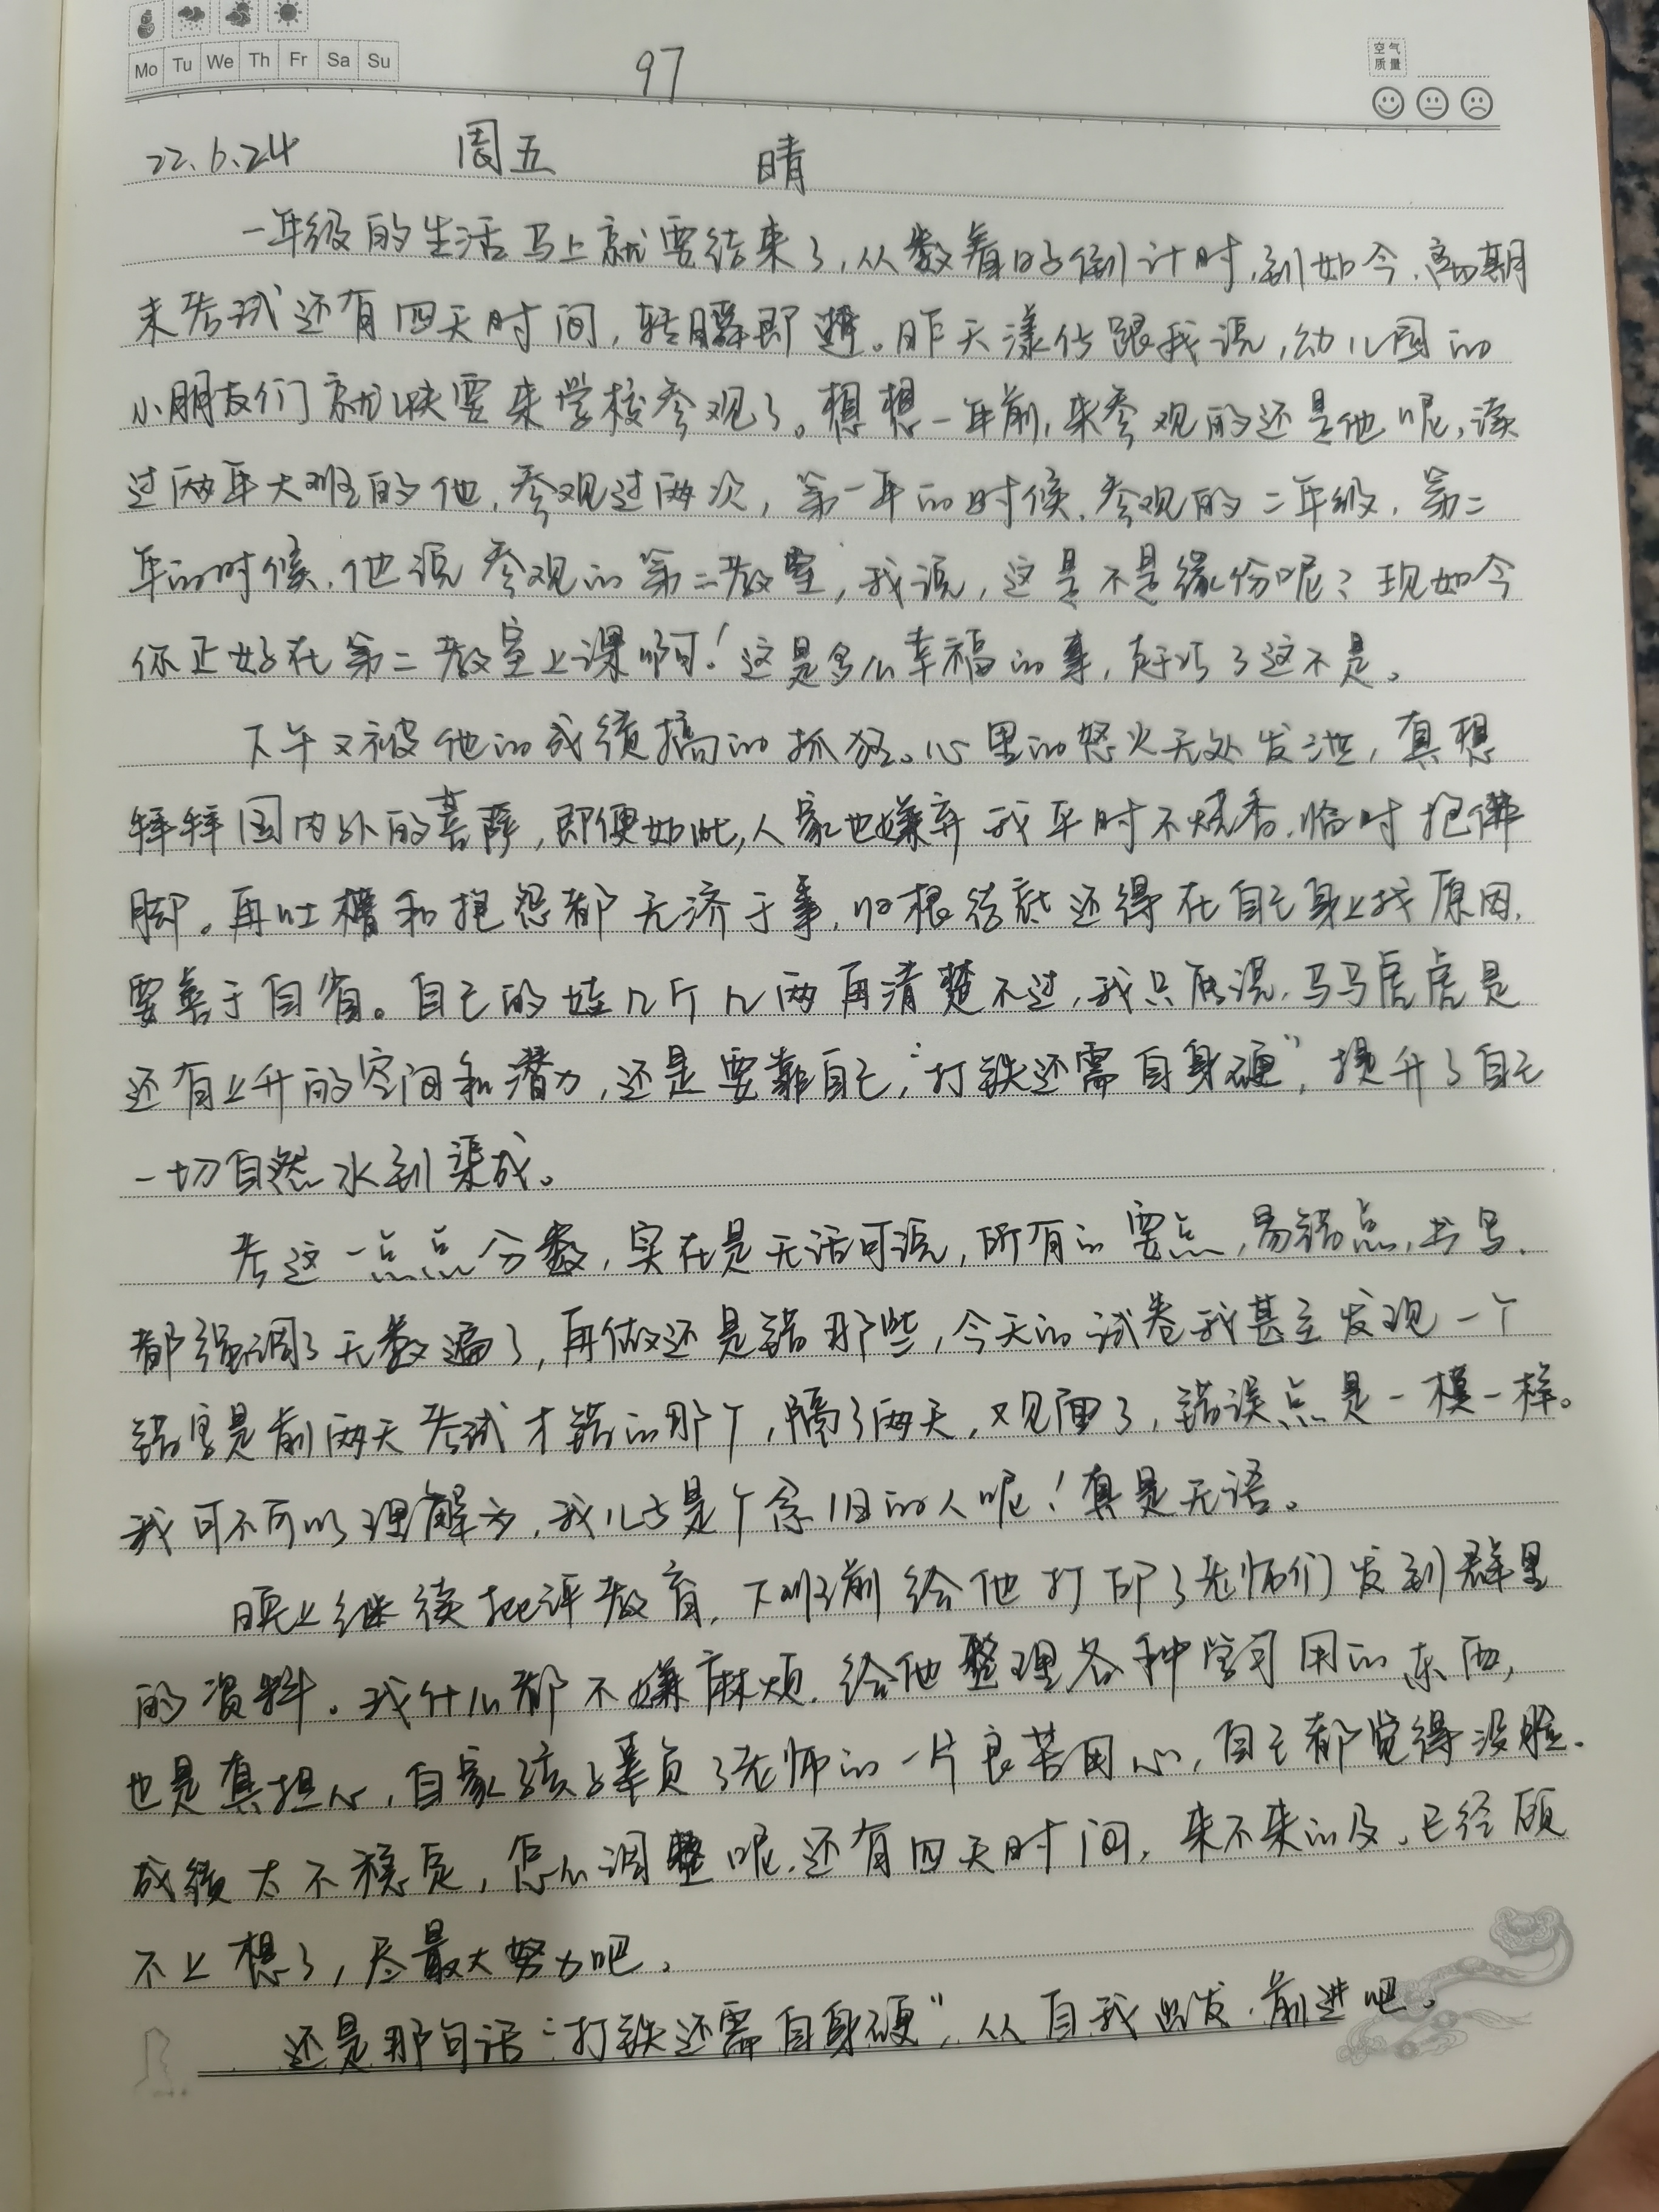 Mo Tu We Th Fr Sa Su
97
空气
质量
22.6.24 周五 晴
一年级的生活马上就要结束了,从数着日子倒计时,到如今,离期
末考试还有四天时间,转瞬即逝。昨天漾仔跟我说,幼儿园的
小朋友们就快要来学校参观了。想想一年前,来参观的还是他呢,读
过两年大班的他,参观过两次,第一年的时候,参观的二年级,第二
年的时候,他说参观的第二教室,我说,这是不是缘份呢?现如今
你正好在第二教室上课啊!这是多么幸福的事,赶巧了这不是。
下午又被他的成绩搞的抓狂。心里的怒火无处发泄,真想
拜拜国内外的菩萨,即便如此,人家也嫌弃我平时不烧香,临时抱佛
脚。再吐槽和抱怨都无济于事,归根结底还得在自己身上找原因,
要善于自省。自己的娃几斤几两再清楚不过,我只能说,马马虎虎是
还有上升的空间和潜力,还是要靠自己,“打铁还需自身硬”,提升了自己
一切自然水到渠成。
考这一点点分数,实在是无话可说,所有的要点,易错点,书写,
都强调了无数遍了,再做还是错那些,今天的试卷我甚至发现一个
错字是前两天考试才错的那个,隔了两天,又见面了,错误点是一模一样。
我可不可以理解为,我儿子是个念旧的人呢!真是无语。
晚上继续批评教育,下班前给他打印了老师们发到群里
的资料。我什么都不嫌麻烦,给他整理各种学习用的东西,
也是真担心,自家孩子辜负了老师的一片良苦用心,自己都觉得没脸.
成绩太不稳定,怎么调整呢,还有四天时间,来不来的及,已经顾
不上想了,尽最大努力吧。
还是那句话“打铁还需自身硬”,从自我出发,前进吧。